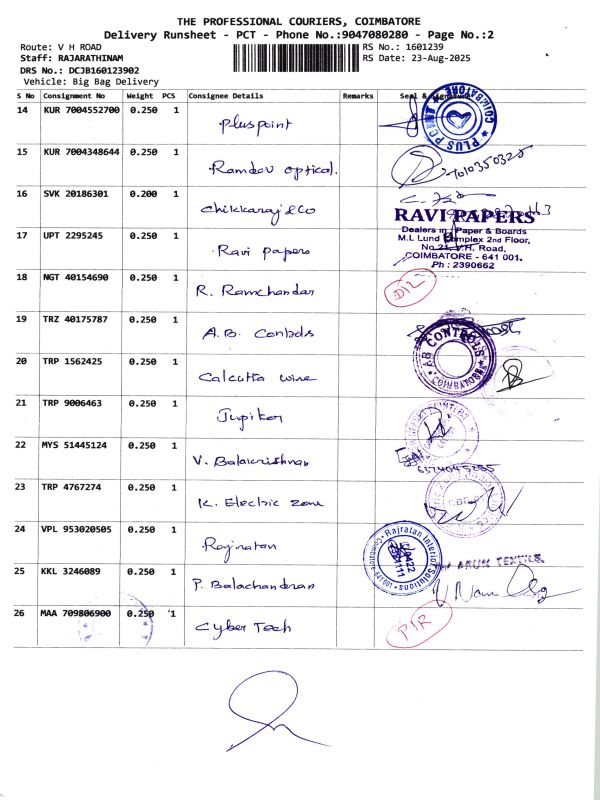 THE PROFESSIONAL COURIERS, COIMBATORE
Delivery Runsheet - PCT - Phone No.:9047080280 - Page No.:2
Route: V H ROAD
RS No.: 1601239
Staff: RAJARATHINAM
RS Date: 23-Aug-2025
DRS No.: DCJB160123902
Vehicle: Big Bag Delivery
S No Consignment No Weight PCS Consignee Details Remarks Seal & Signature
14 KUR 7004552700 0.250 1 Pluspoint
PLUS POINT COIMBATORE
15 KUR 7004348644 0.250 1 Ramdev optical.
16 SVK 20186301 0.200 1 Chikkaraj & Co
17 UPT 2295245 0.250 1 Ravi papers
RAVI PAPERS
Dealers in Paper & Boards
M.L Lund Complex 2nd Floor,
No.21, V.H. Road,
COIMBATORE - 641 001.
Ph : 2390662
18 NGT 40154690 0.250 1 R. Ramchandar
19 TRZ 40175787 0.250 1 A.B. Contols
AB CONTROLS COIMBATORE
20 TRP 1562425 0.250 1 Calcutta wine
21 TRP 9006463 0.250 1 Jupiter
22 MYS 51445124 0.250 1 V. Balakrishnan
23 TRP 4767274 0.250 1 K. Electric zone
24 VPL 953020505 0.250 1 Rajratan
Rajratan Interior Solutions
25 KKL 3246089 0.250 1 P. Balachandran
ARUN TEXTILE
26 MAA 709806900 0.250 1 Cyber Tech